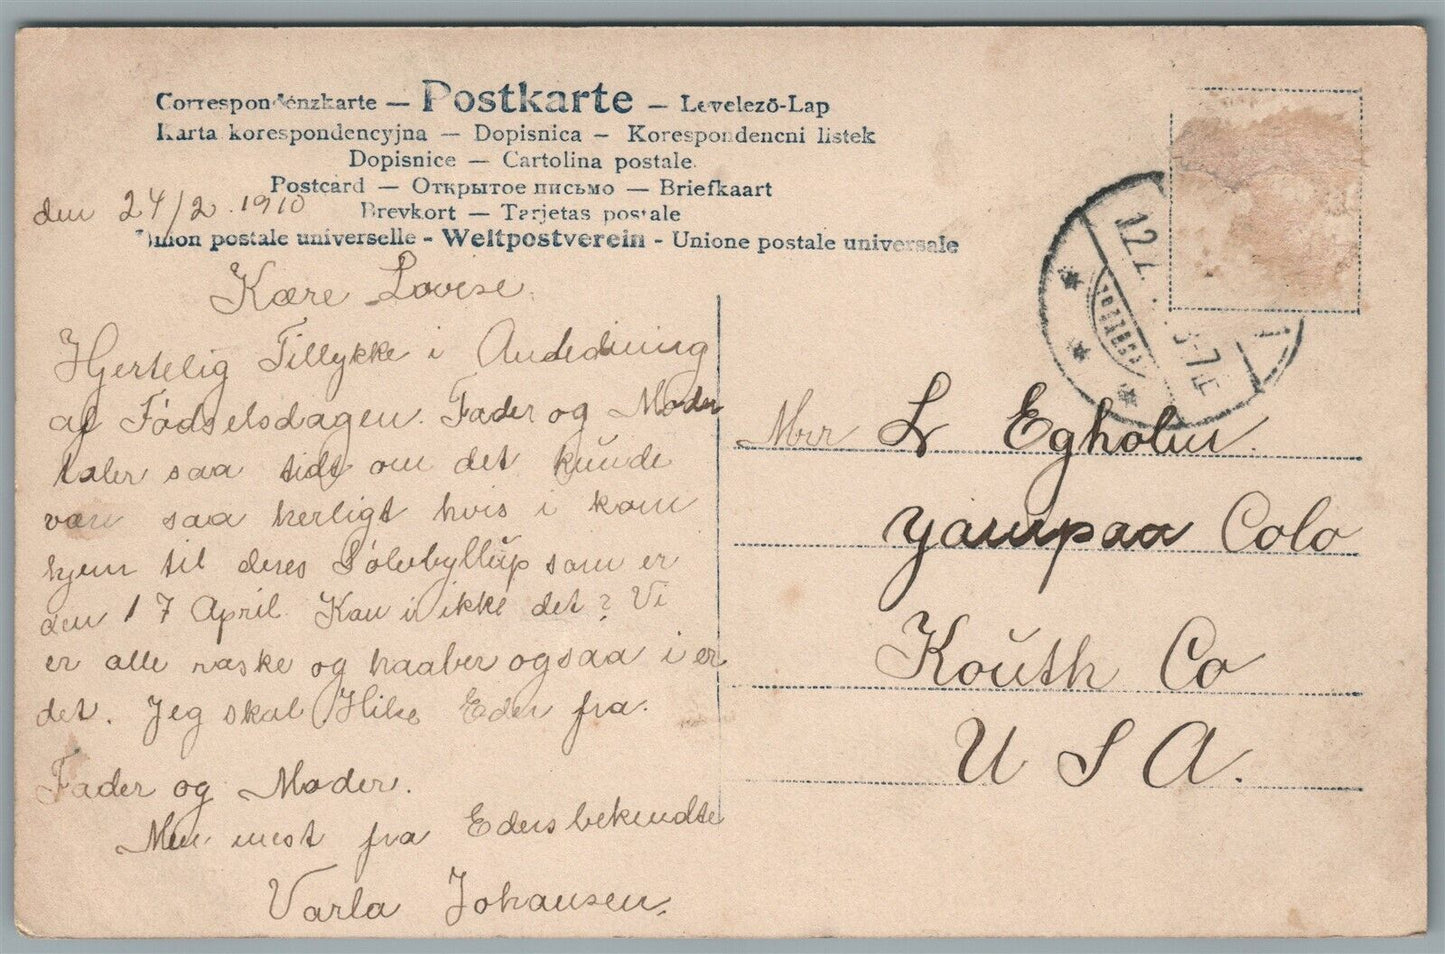 Correspondenzkarte — Postkarte — Levelező-Lap
Karta korespondencyjna — Dopisnica — Korespondencni listek
Dopisnice — Cartolina postale.
Postcard — Открытое письмо — Briefkaart
Brevkort — Tarjetas postale
Union postale universelle - Weltpostverein - Unione postale universale
den 24/2 1910
Kære Lovise.
Hjertelig Tillykke i
af Fødselsdagen. Fader og Moder
taler saa tidt om det kunde
være saa herligt hvis i kom
hjem til deres Sølvbyllup som er
den 17 April. Kan i ikke det? Vi
er alle raske og haaber ogsaa i er
det. Jeg skal Hilse Eder fra.
Fader og Moder.
Men mest fra Eders bekendte
Varla Johansen.
Mrr L Egholm.
Yampaa Colo
Routh Co
U S A.